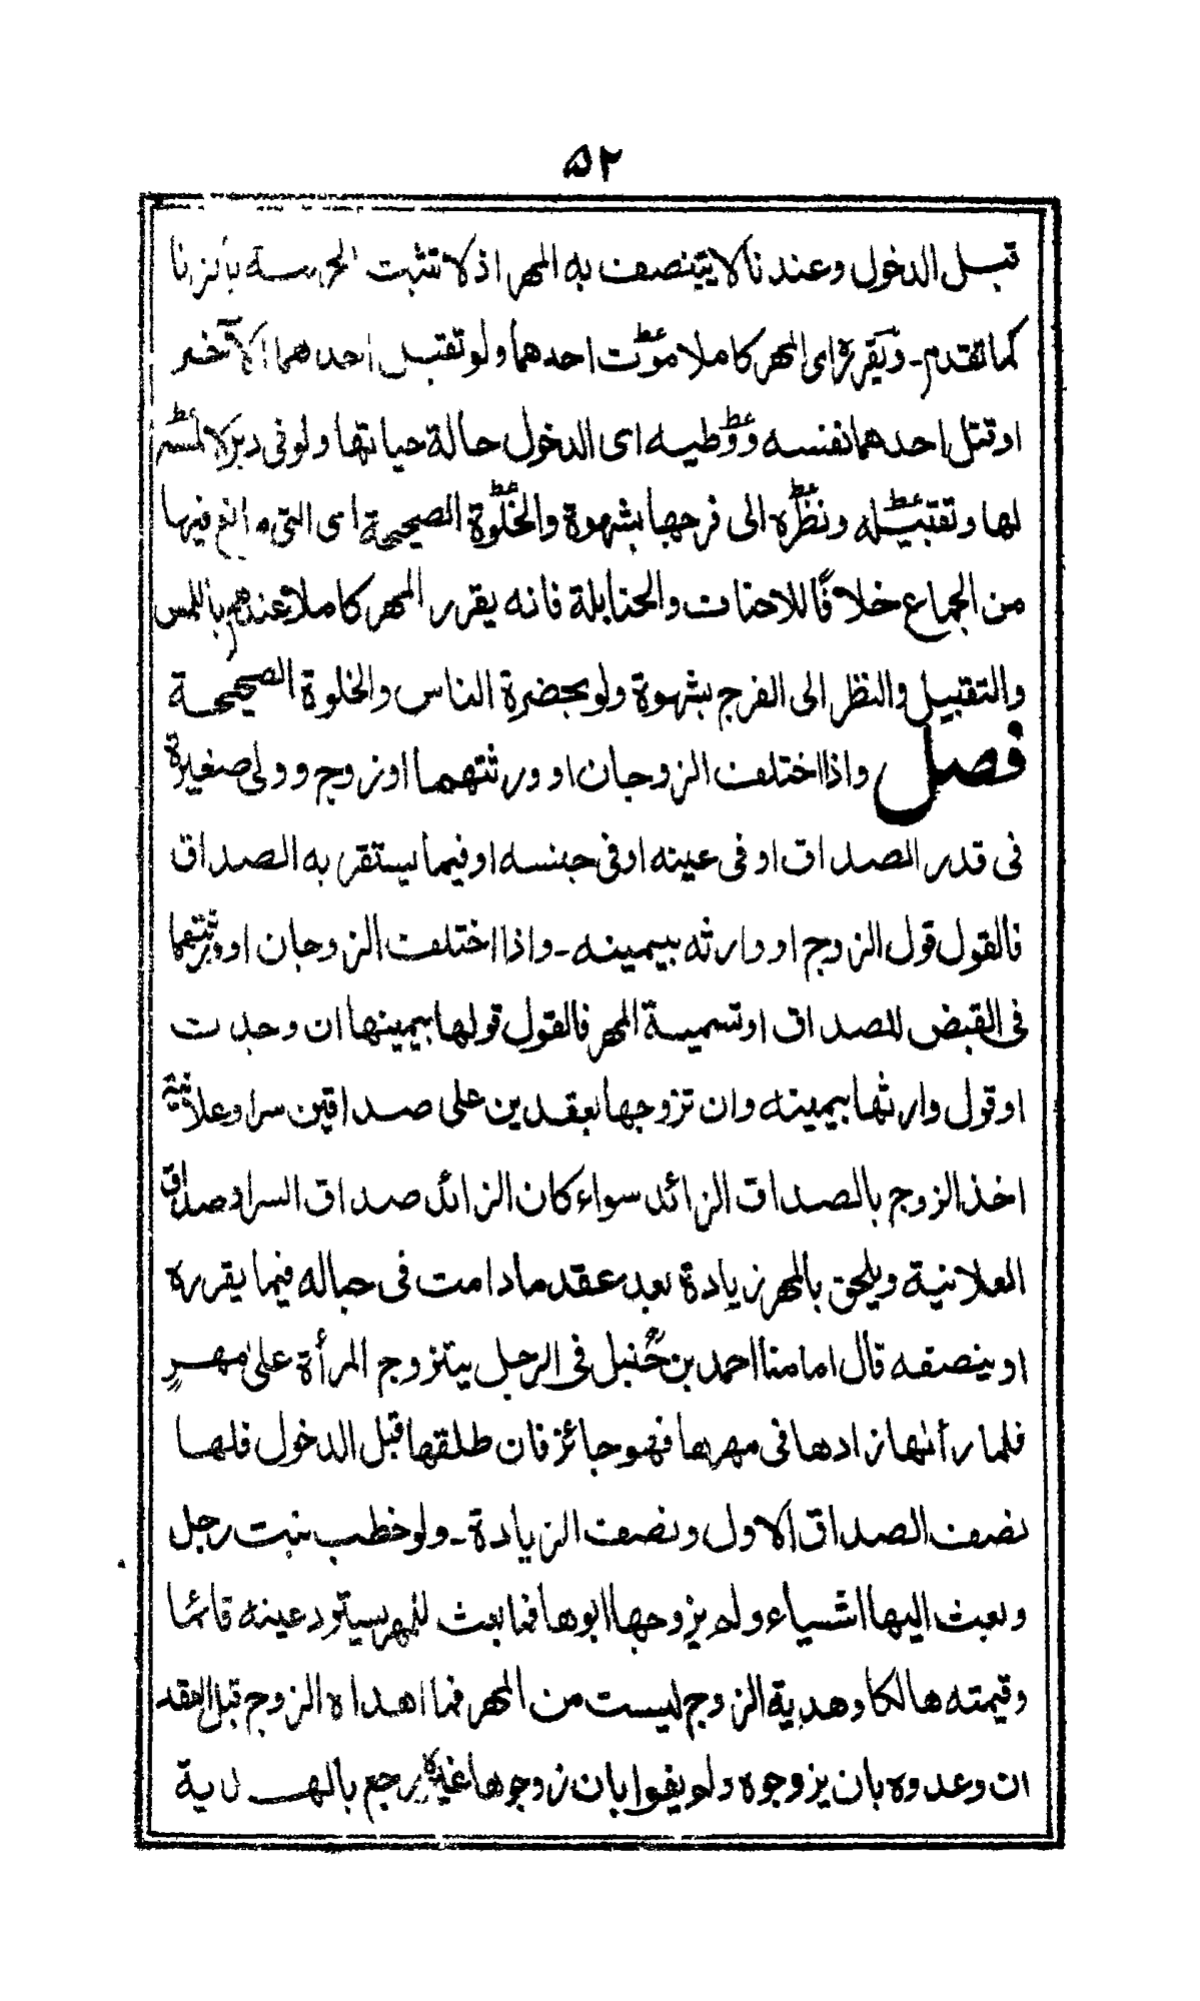 ۵۲
قبل الدخول وعندنا لا يتنصف به المهر اذ لا تثبت الحرمة بالزنا
كما تقدم ـ ويقرره اى المهر كاملا موت احدهما ولو تقبل احدهما الآخر
او قتل احدهما نفسه ووطيه اى الدخول حالة حياتها ولو فى دبر
لها وتقبيله ونظره الى فرجها بشهوة والخلوة الصحيحة اى التى فيها
من الجماع خلافًا للاحناف والحنابلة فانه يقرر المهر كاملا عندهم باللمس
والتقبيل والنظر الى الفرج بشهوة ولو بحضرة الناس والخلوة الصحيحة
فصل واذا اختلف الزوجان او ورثتهما او زوج وولى صغيرة
فى قدر الصداق او فى عينه او فى جنسه او فيما يستقر به الصداق
فالقول قول الزوج او وارثه بيمينه ـ واذا اختلف الزوجان او ورثتهما
فى القبض للصداق او تسمية المهر فالقول قولها بيمينها ان وجدت
او قول وارثها بيمينه وان تزوجها بعقدين على صداقين سرا وعلانية
اخذ الزوج بالصداق الزائد سواء كان الزائد صداق السر او صداق
العلانية ويلحق بالمهر زيادة بعد عقد ما دامت فى حباله فيما يقرره
او ينصفه قال امامنا احمد بن حنبل فى الرجل يتزوج المرأة على مهرٍ
فلما رأها زادها فى مهرها فهو جائز فان طلقها قبل الدخول فلها
نصف الصداق الاول ونصف الزيادة ـ ولو خطب بنت رجل
وبعث اليها اشياء ولم يزوجها ابوها فما بعث للمهر يسترد عينه قائما
وقيمته هالكا وهدية الزوج ليست من المهر فما اهداه الزوج قبل العقد
ان وعدوه بان يزوجوه ولم يفوا بان زوجوها غيره يرجع بالهدية